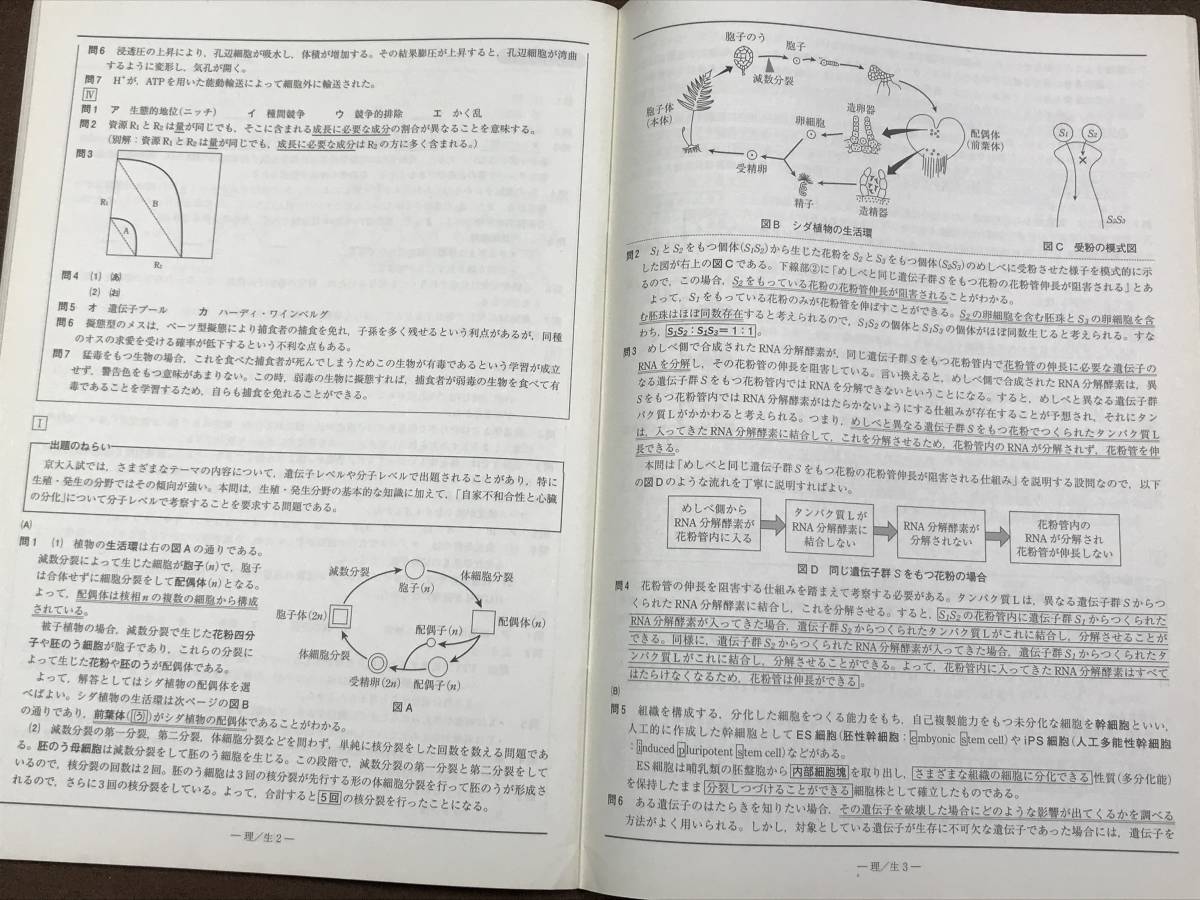 問6 浸透圧の上昇により，孔辺細胞が吸水し，体積が増加する。その結果膨圧が上昇すると，孔辺細胞が湾曲
するように変形し，気孔が開く。
問7 H⁺が，ATPを用いた能動輸送によって細胞外に輸送された。
Ⅳ
問1 ア 生態的地位(ニッチ) イ 種間競争 ウ 競争的排除 エ かく乱
問2 資源R₁とR₂は量が同じでも，そこに含まれる成長に必要な成分の割合が異なることを意味する。
(別解：資源R₁とR₂は量が同じでも，成長に必要な成分はR₂の方に多く含まれる。)
問3
R₁
B
A
R₂
問4 (1) (あ)
(2) (お)
問5 オ 遺伝子プール カ ハーディ・ワインベルグ
問6 擬態型のメスは，ベーツ型擬態により捕食者の捕食を免れ，子孫を多く残せるという利点があるが，同種
のオスの求愛を受ける確率が低下するという不利な点もある。
問7 猛毒をもつ生物の場合，これを食べた捕食者が死んでしまうためこの生物が有毒であるという学習が成立
せず，警告色をもつ意味があまりない。この時，弱毒の生物に擬態すれば，捕食者が弱毒の生物を食べて有
毒であることを学習するため，自らも捕食を免れることができる。
Ⅰ
出題のねらい
京大入試では，さまざまなテーマの内容について，遺伝子レベルや分子レベルで出題されることがあり，特に
生殖・発生の分野ではその傾向が強い。本問は，生殖・発生分野の基本的な知識に加えて，「自家不和合性と心臓
の分化」について分子レベルで考察することを要求する問題である。
(A)
問1 (1) 植物の生活環は右の図Aの通りである。
減数分裂によって生じた細胞が胞子(n)で，胞子
は合体せずに細胞分裂をして配偶体(n)となる。
よって，配偶体は核相nの複数の細胞から構成
されている。
被子植物の場合，減数分裂で生じた花粉四分
子や胚のう細胞が胞子であり，これらの分裂に
よって生じた花粉や胚のうが配偶体である。
よって，解答としてはシダ植物の配偶体を選
べばよい。シダ植物の生活環は次ページの図B
の通りであり，前葉体((う))がシダ植物の配偶体であることがわかる。
減数分裂
胞子(n)
体細胞分裂
胞子体(2n)
配偶子(n)
配偶体(n)
体細胞分裂
受精卵(2n)
配偶子(n)
図A
(2) 減数分裂の第一分裂，第二分裂，体細胞分裂などを問わず，単純に核分裂をした回数を数える問題であ
る。胚のう母細胞は減数分裂をして胚のう細胞を生じる。この段階で，減数分裂の第一分裂と第二分裂をして
いるので，核分裂の回数は2回。胚のう細胞は3回の核分裂が先行する形の体細胞分裂を行って胚のうが形成さ
れるので，さらに3回の核分裂をしている。よって，合計すると5回の核分裂を行ったことになる。
― 理／生2 ―
胞子のう
胞子
減数分裂
胞子体
(本体)
造卵器
卵細胞
配偶体
(前葉体)
受精卵
精子
造精器
図B シダ植物の生活環
S₁
S₂
S₂S₃
図C 受粉の模式図
問2 S₁とS₂をもつ個体(S₁S₂)から生じた花粉をS₂とS₃をもつ個体(S₂S₃)のめしべに受粉させた様子を模式的に示
した図が右上の図Cである。下線部②に「めしべと同じ遺伝子群Sをもつ花粉の花粉管伸長が阻害される」とあ
るので，この場合，S₂をもっている花粉の花粉管伸長が阻害されることがわかる。
よって，S₁をもっている花粉のみが花粉管を伸ばすことができる。S₂の卵細胞を含む胚珠とS₃の卵細胞を含
む胚珠はほぼ同数存在すると考えられるので，S₁S₂の個体とS₁S₃の個体がほぼ同数生じると考えられる。すな
わち，S₁S₂：S₁S₃＝1：1。
問3 めしべ側で合成されたRNA分解酵素が，同じ遺伝子群Sをもつ花粉管内で花粉管の伸長に必要な遺伝子の
RNAを分解し，その花粉管の伸長を阻害している。言い換えると，めしべ側で合成されたRNA分解酵素は，異
なる遺伝子群Sをもつ花粉管内ではRNAを分解できないということになる。すると，めしべと異なる遺伝子群
Sをもつ花粉管内ではRNA分解酵素がはたらかないようにする仕組みが存在することが予想され，それにタン
パク質Lがかかわると考えられる。つまり，めしべと異なる遺伝子群Sをもつ花粉でつくられたタンパク質L
は，入ってきたRNA分解酵素に結合して，これを分解させるため，花粉管内のRNAが分解されず，花粉管を伸
長できる。
本問は「めしべと同じ遺伝子群Sをもつ花粉の花粉管伸長が阻害される仕組み」を説明する設問なので，以下
の図Dのような流れを丁寧に説明すればよい。
めしべ側から
RNA分解酵素が
花粉管内に入る
タンパク質Lが
RNA分解酵素に
結合しない
RNA分解酵素が
分解されない
花粉管内の
RNAが分解され
花粉管が伸長しない
図D 同じ遺伝子群Sをもつ花粉の場合
問4 花粉管の伸長を阻害する仕組みを踏まえて考察する必要がある。タンパク質Lは，異なる遺伝子群Sからつ
くられたRNA分解酵素に結合し，これを分解させる。すると，S₁S₂の花粉管内に遺伝子群S₁からつくられた
RNA分解酵素が入ってきた場合，遺伝子群S₂からつくられたタンパク質Lがこれに結合し，分解させることが
できる。同様に，遺伝子群S₂からつくられたRNA分解酵素が入ってきた場合，遺伝子群S₁からつくられたタ
ンパク質Lがこれに結合し，分解させることができる。よって，花粉管内に入ってきたRNA分解酵素はすべて
はたらけなくなるため，花粉管は伸長ができる。
(B)
問5 組織を構成する，分化した細胞をつくる能力をもち，自己複製能力をもつ未分化な細胞を幹細胞といい，
人工的に作成した幹細胞としてES細胞(胚性幹細胞：embyonic stem cell)やiPS細胞(人工多能性幹細胞
：induced pluripotent stem cell)などがある。
ES細胞は哺乳類の胚盤胞から内部細胞塊を取り出し，さまざまな組織の細胞に分化できる性質(多分化能)
を保持したまま分裂しつづけることができる細胞株として確立したものである。
問6 ある遺伝子のはたらきを知りたい場合，その遺伝子を破壊した場合にどのような影響が出てくるかを調べる
方法がよく用いられる。しかし，対象としている遺伝子が生存に不可欠な遺伝子であった場合には，遺伝子を
― 理／生3 ―